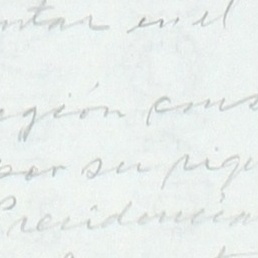 ntar en el
egión cons
por su riqu
Presidencia